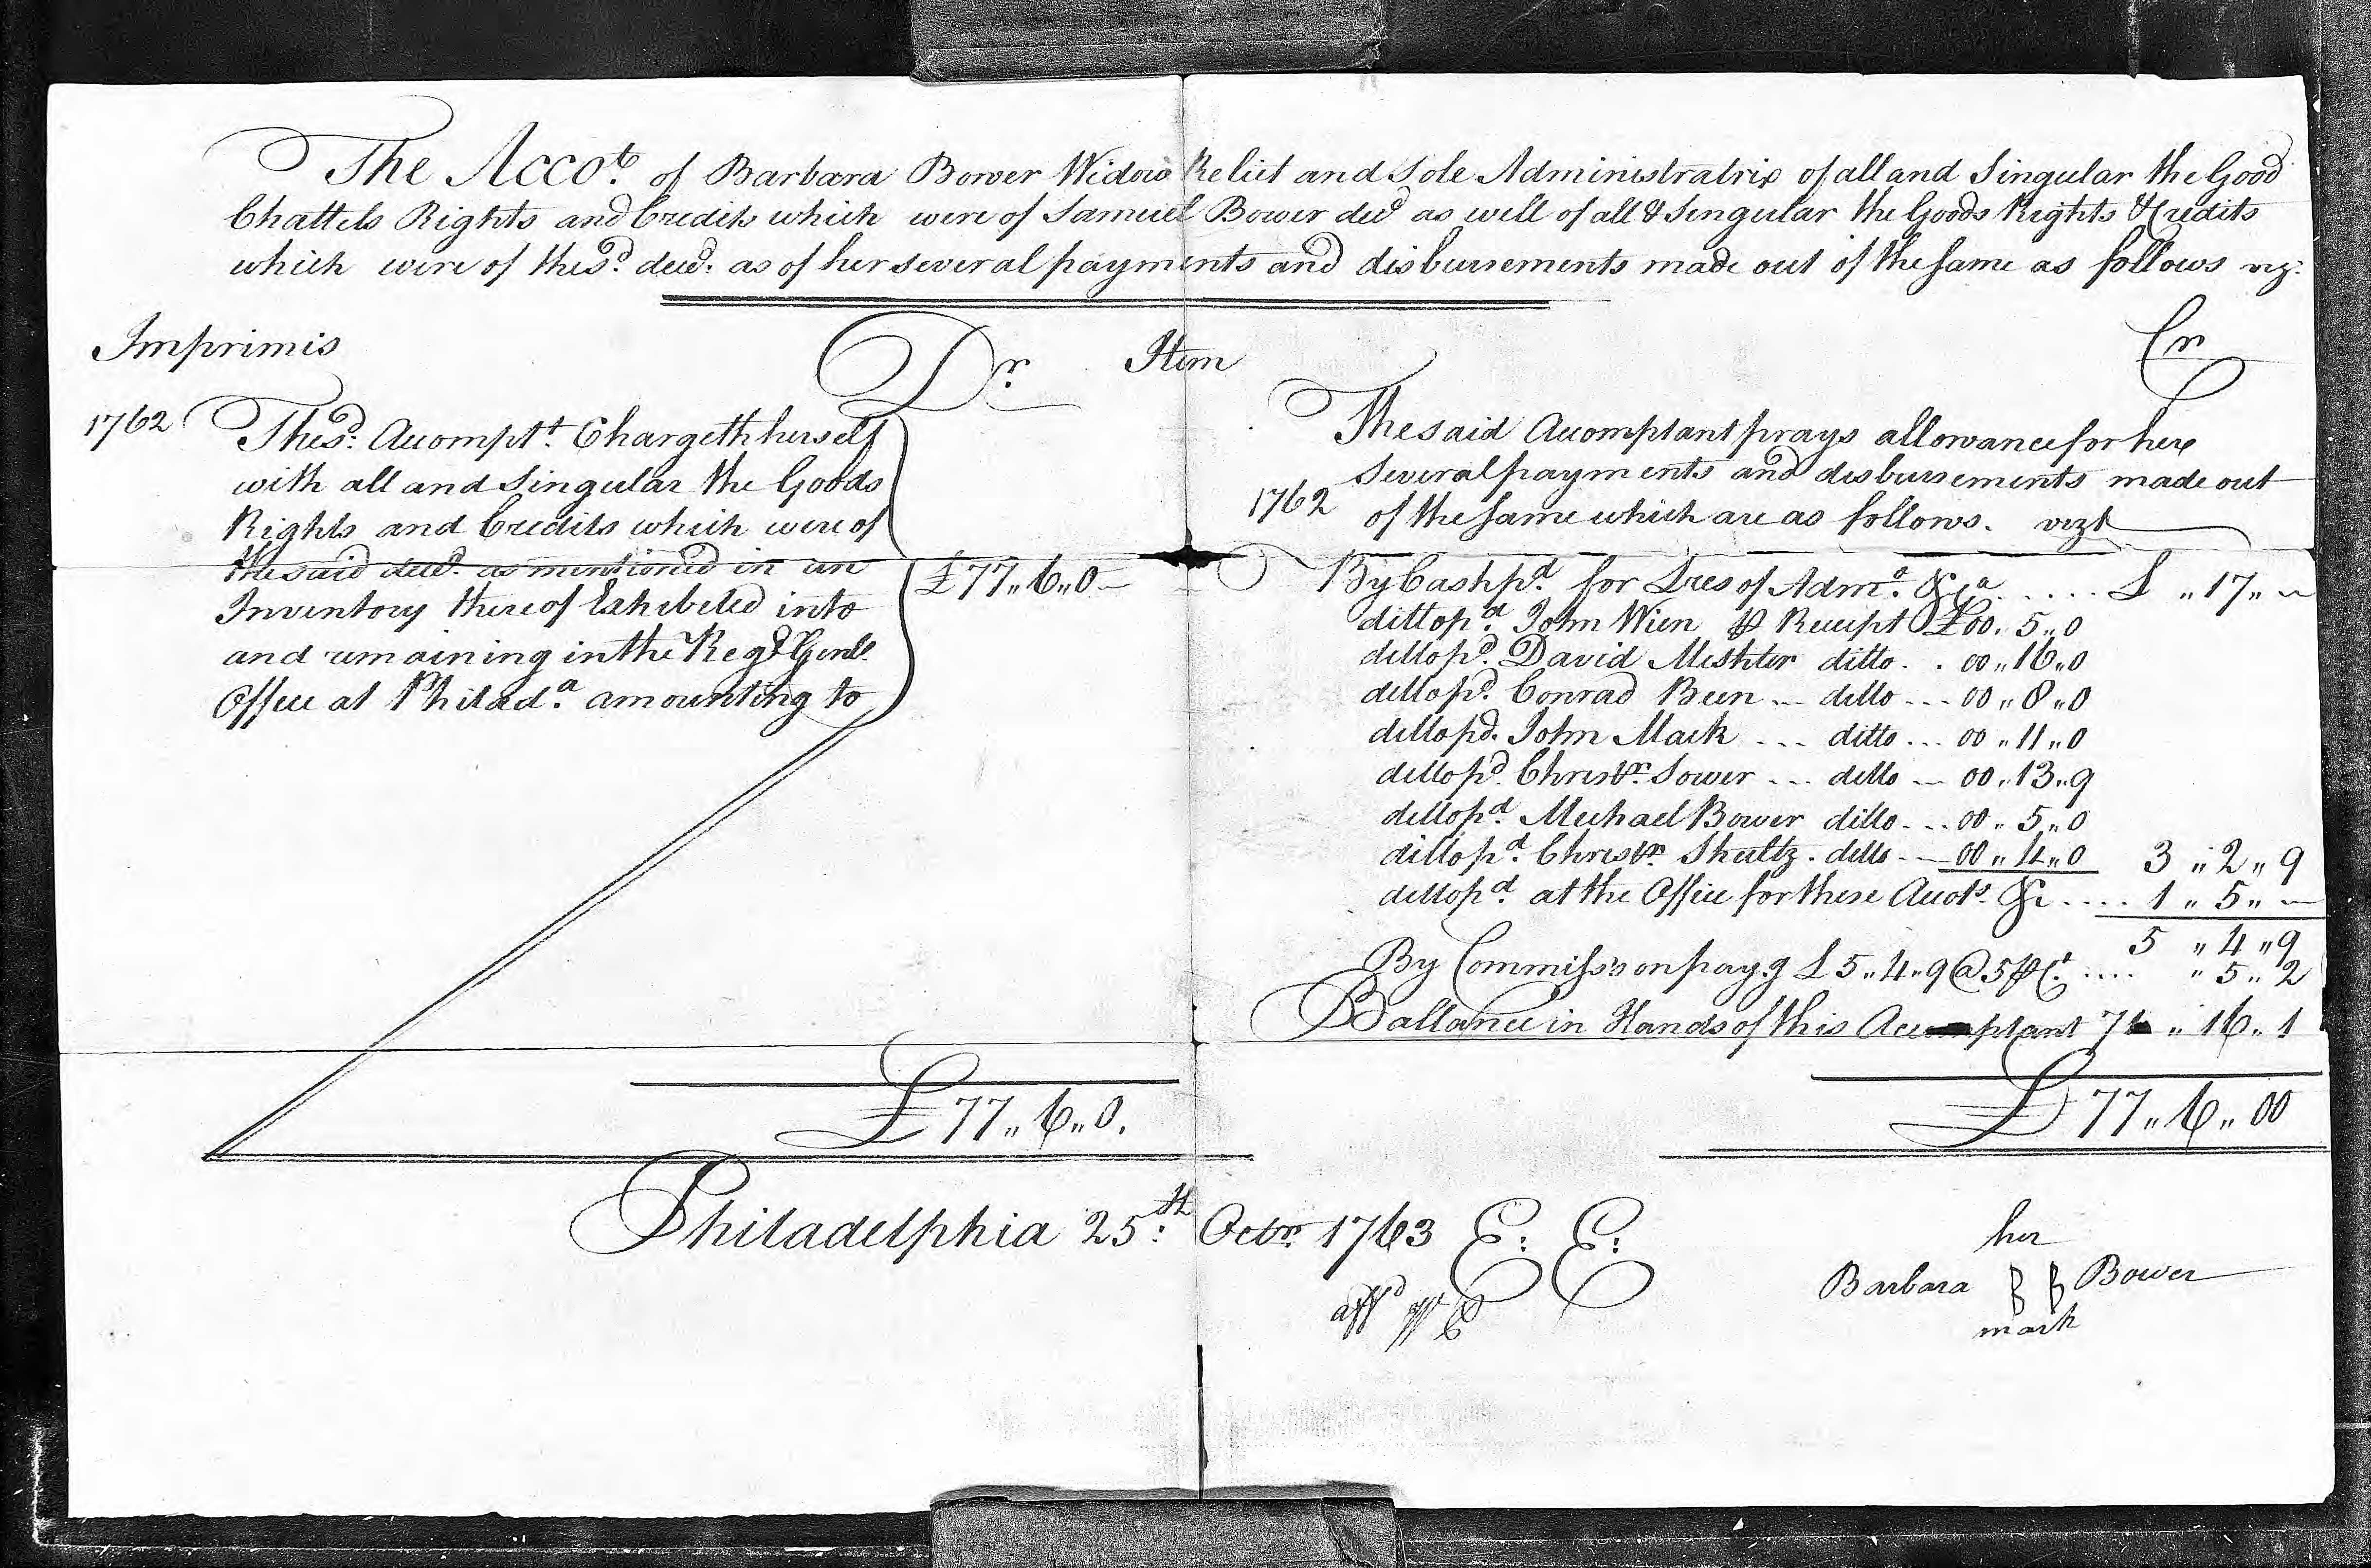 The Accot. of Barbara Bower Widow Relict and Sole Administratrix of all and Singular the Good
Chattels Rights and Credits which were of Samuel Bower decd as well of all & Singular the Goods Rights & Credits
which were of the sd. decd. as of her several payments and disbursements made out of the same as follows viz.
Imprimis Dr. Item Cr
1762 The sd. Accomptt. Chargeth herself
with all and Singular the Goods
Rights and Credits which were of
the said decd. as mentioned in an
Inventory thereof Exhibited into
and remaining in the Regr Genls.
Office at Philada. amounting to
£77,,6,,0
£77,,6,,0.
The said Accomptant prays allowance for her
several payments and disbursements made out
1762 of the same which are as follows. vizt
By Cash pd. for Lres of Adm.o &ca ..... £ ,,17,, ~
ditto pd. John Wien ⅌ Receipt £00,,5,,0
ditto pd. David Meshter ditto . . 00,,16,,0
ditto pd. Conrad Been ... ditto ... 00,,8,,0
ditto pd. John Mack ... ditto ... 00,,11,,0
ditto pd. Christr. Sower ... ditto ... 00,,13,,9
ditto pd. Michael Bower ditto ... 00,,5,,0
ditto pd. Christr. Shultz . ditto ... 00,,4,,0 3,,2,,9
ditto pd. at the Office for these Accots. &c .... 1,,5,, ~
5,,4,,9
By Commiss's on pay.g £5,,4,,9 @ 5 ⅌ Ct. .... ,,5,,2
Ballance in Hands of this Accomptant 71,,16,,1
£77,,6,,00
Philadelphia 25:th Octr. 1763 E: E:
affd
her
Barbara B B Bower
mark